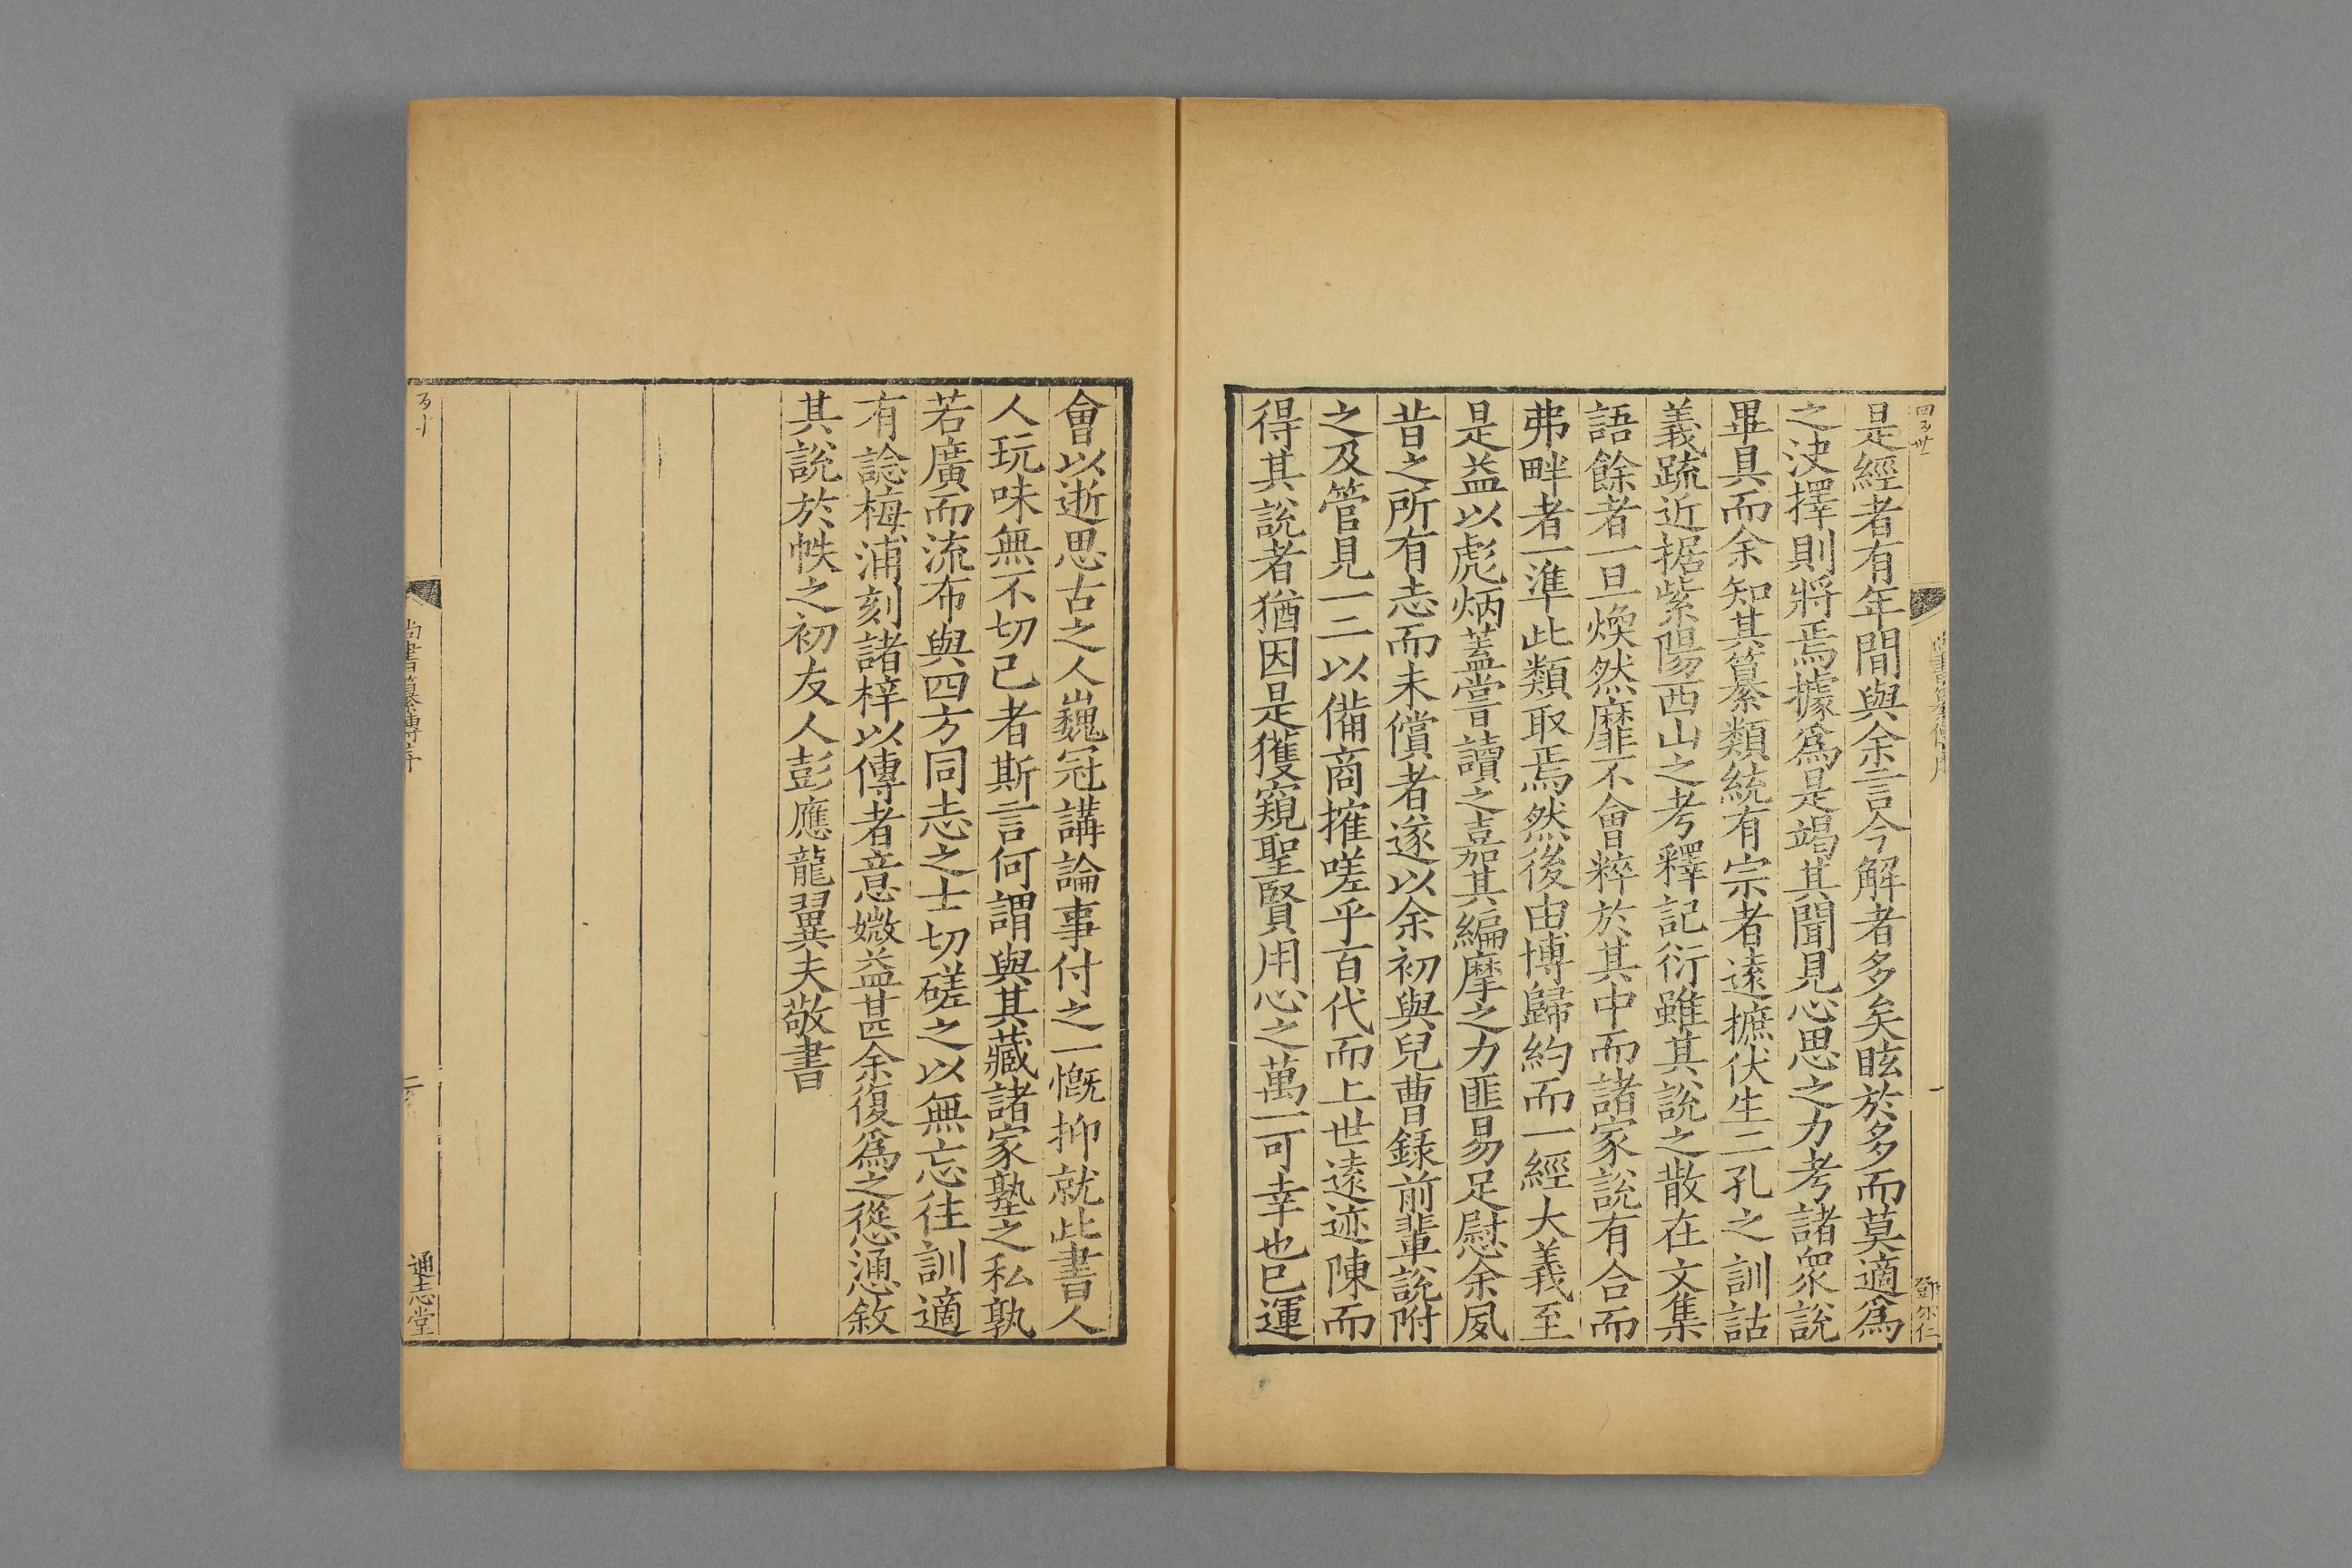 是經者有年間與余言今解者多矣眩於多而莫適爲
之決擇則將焉據爲是竭其聞見心思之力考諸衆說
畢具而余知其纂類統有宗者遠摭伏生二孔之訓詁
義䟽近据紫陽西山之考釋記衍雖其說之散在文集
語餘者一旦煥然靡不會粹於其中而諸家說有合而
弗畔者一準此類取焉然後由博歸約而一經大義至
是益以彪炳蓋嘗讀之嘉其編摩之力匪易足慰余夙
昔之所有志而未償者遂以余初與兒曹錄前輩說附
之及管見一二以備商搉嗟乎百代而上世遠迹陳而
得其說者猶因是獲窺聖賢用心之萬一可幸也已運
會以逝思古之人巍冠講論事付之一慨抑就此書人
人玩味無不切己者斯言何謂與其藏諸家塾之私孰
若廣而流布與四方同志之士切磋之以無忘往訓適
有諗梅浦刻諸梓以傳者意媺益甚余復爲之慫湧敘
其說於帙之初友人彭應龍翼夫敬書
尚書纂傳序
二
通志堂